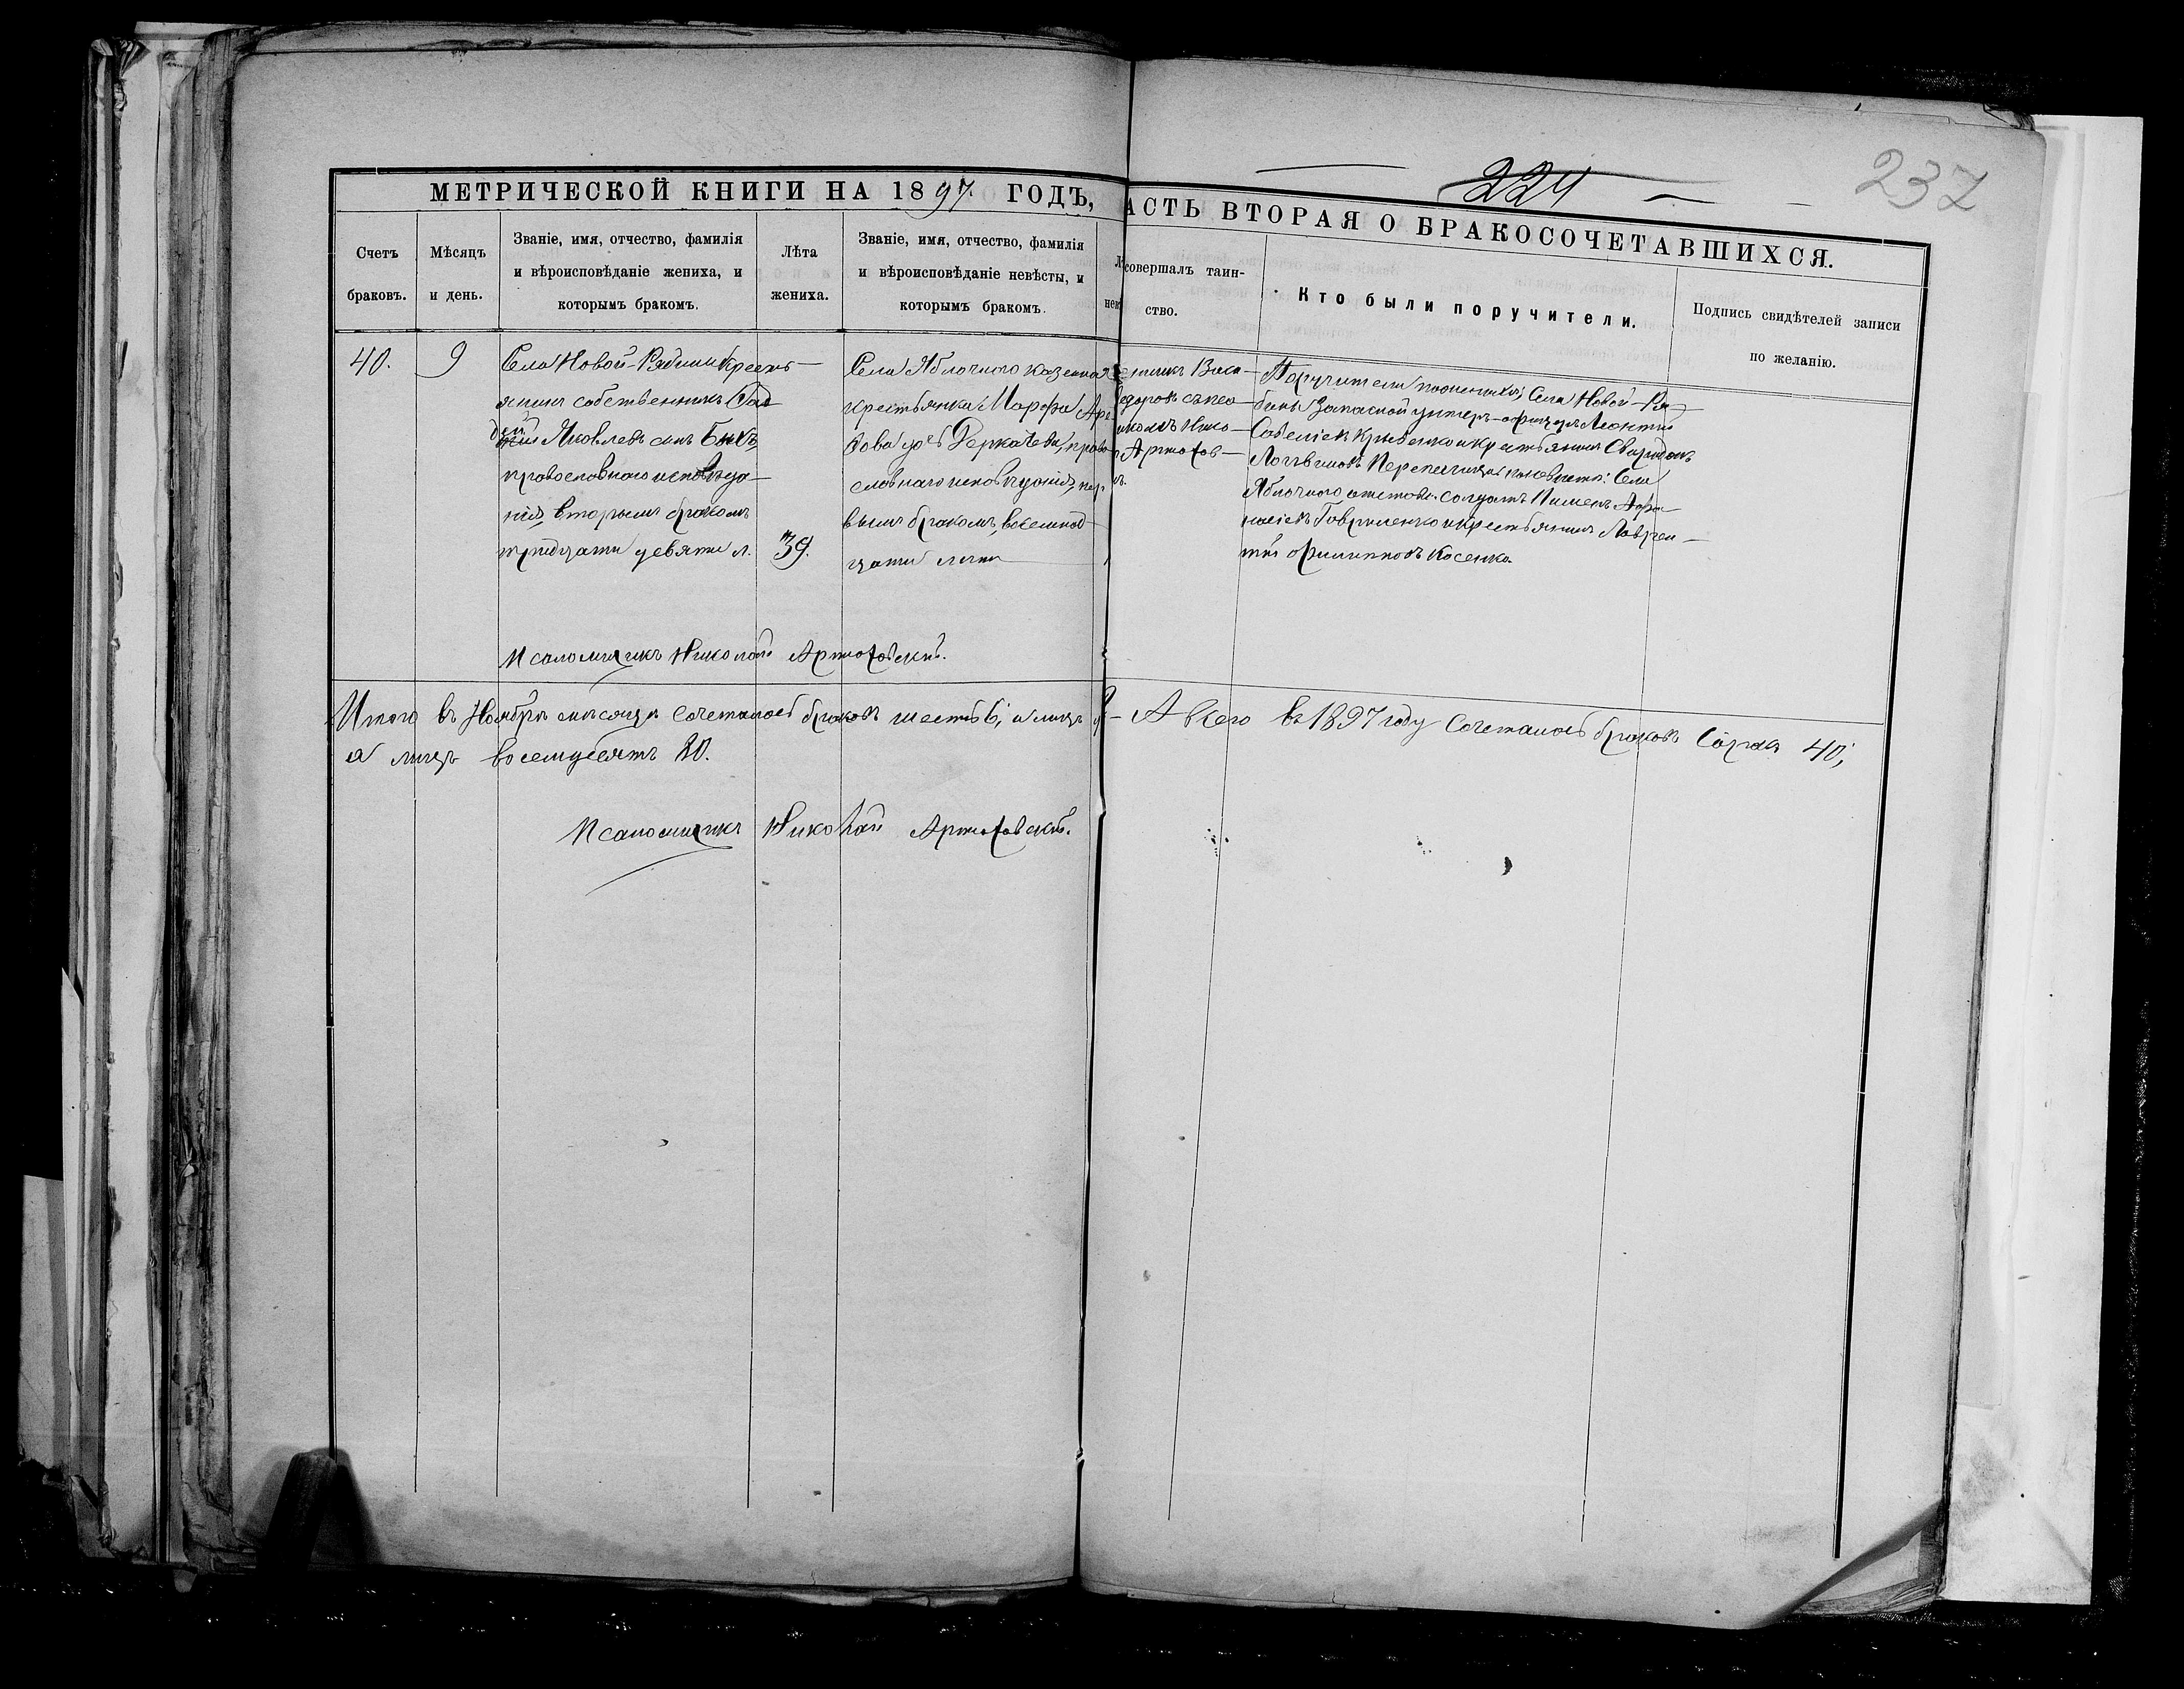 224
237
МЕТРИЧЕСКОЙ КНИГИ НА 1897 ГОДЪ,
АСТЬ ВТОРАЯ О БРАКОСОЧЕТАВШИХСЯ.
Счетъ
браковъ.
Мѣсяцъ
и день.
Званіе, имя, отчество, фамилія
и вѣроисповѣданіе жениха, и
которымъ бракомъ.
Лѣта
жениха.
Званіе, имя, отчество, фамилія
и вѣроисповѣданіе невѣсты, и
которымъ бракомъ.
совершалъ таин-
ство.
Кто были поручители.
Подпись свидѣтелей записи
по желанію.
40.
9
Села Новой-Рябины Кресть-
янинъ собственникъ
Яковлевъ сынъ Быкъ,
православнаго исповѣда-
нія, вторымъ бракомъ
тридцати девяти л.
39.
Села Яблочного казенная
крестьянка Марѳа
дочь Деркачева, право-
славнаго исповѣданія, пер-
вымъ бракомъ, восемнад-
цати лѣтъ
Поручители по женихѣ: Села Новой-Ря-
бины Запасной унтеръ-офицеръ Леонтій
Крывенко и крестьянинъ
Логвиновъ Перепелица; по невѣстѣ: Села
Яблочного отставн. солдатъ Пименъ Афа-
насіевъ Гавриленко и крестьянинъ Лаврен-
тій Филипповъ Косенко.
Псаломщикъ Николай Артюховскій.
Итого въ Ноябрѣ мѣсяцѣ сочеталось браковъ шесть 6; а лицъ
А всего въ 1897 году сочеталось браковъ сорокъ 40;
а лицъ восемдесятъ 80.
Псаломщикъ Николай Артюховскій.